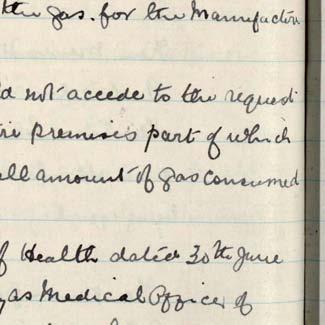 the gas. for the Manufactur
d not accede to the request
premises part of which
all amount of gas consumed
f Health dated 30th June
as Medical Officer of